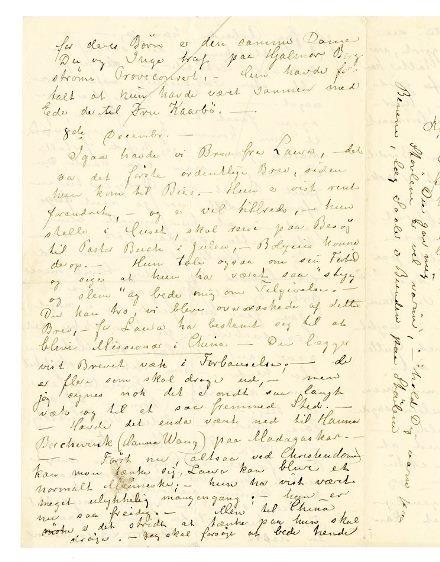 for deres Børn er den samme Dame
Du og Inga traf paa Hjalmar
strøms Prøveconsert. – Hun havde for
talt at hun havde været sammen med
Eder de til Fru Kaarbø. –
– 8de December. –
Igaar havde vi Brev fra Laura, – det
va det første ordentlige Brev, siden
hun kom til Bies. – Hun er vist rent
forandret, – og er vel tilfreds, – hun
steller i Huset, skal reise paa Besøg
til Pastor Buch i Julen, –
derop. – Hun tale ogsaa om sin Fortid
og siger at hun ha været saa "styg
og slem" og bede mig om Tilgivelse. –
Du kan tro, vi bleve overraskede af dette
Brev, – for Laura har bestemt sig til at
blive Missionær i China – Du lægger
vist Brevet væk i Forbauselse. – de
er flere som skal drage ud, – men
jeg synes nok det er ondt saa langt
væk og til et saa fremmed Sted. –
Havde det enda været ned til Hanna
Borchgrevink (Hanna Wang) paa Madagaskar. –
– Først nu (altsaa ved Christendom)
kan man tænke sig, Laura kan blive et
normalt Menneske. – hun ha vist været
meget ulykkelig mangengang; – hun er
nu saa freidig. – Men til China
det at tænke paa hun skal
drage. – Jeg skal forsøge at bede hende
Du gaa
er vel varm, – hold Dig varm paa
Benene, læg Saaler i Bunden paa Støvlene